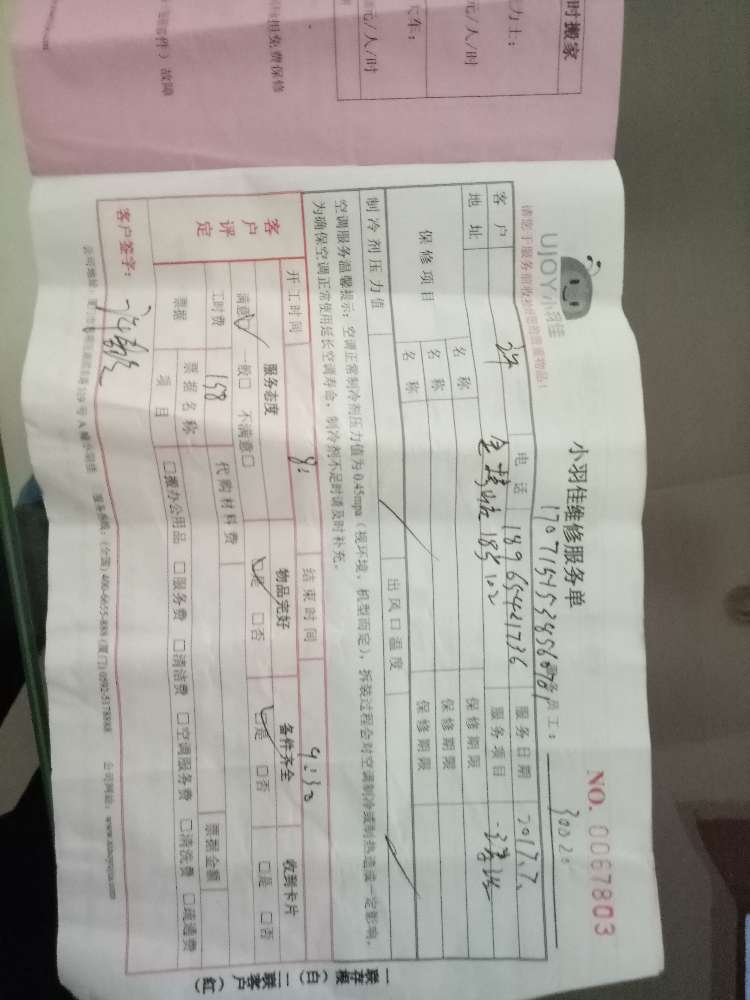 时搬家
力士：
元/人/时
汽车：
元/人/时
免费保修
件）故障
UJOY小羽佳
小羽佳维修服务单
NO. 0067803
请您于服务前收好您的贵重物品！
员工：
30020
客户
许
电话
18965421736
服务日期
2017.7.
地址
18号102
服务项目
保修项目
名称
保修期限
名称
保修期限
名称
保修期限
制冷剂压力值
出风口温度
空调服务温馨提示：空调正常制冷剂压力值为0.45mpa（视环境、机型而定），拆装过程会对空调制冷或制热造成一定影响，
为确保空调正常使用延长空调寿命，制冷剂不足时请及时补充。
开工时间
8:
结束时间
9:30
客户评定
服务态度
物品完好
备件齐全
收到卡片
满意☑ 一般□ 不满意□
☑是 □否
☑是 □否
□是 □否
工时费
158
代购材料费
票据
票据名称
票据金额
项目
□搬办公用品 □服务费 □清洁费 □空调服务费 □清洗费 □疏通费
客户签字：
公司地址：厦门市
服务热线：（全国）400-6655-888（厦门）0592-5178888
公司网址：www.xiaoyujia.com
一联存根（白） 二联客户（红）